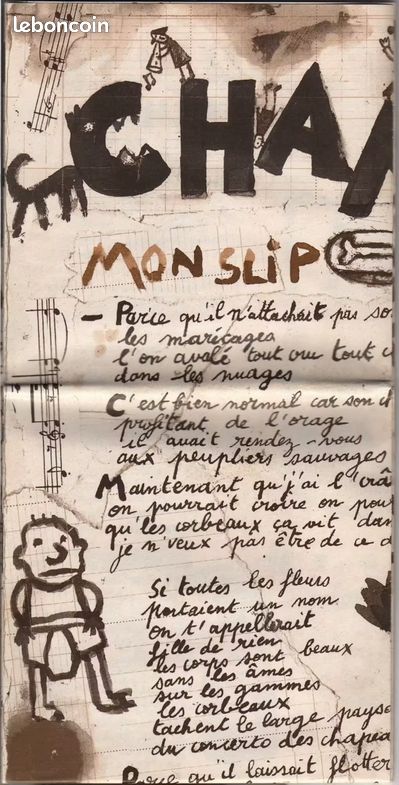 leboncoin
CHA
MON SLIP
- Parce qu'il n'attachait pas so
les marécages
l'on avalé tout cru tout c
dans les nuages
C'est bien normal car son
profitant de l'orage
il avait rendez-vous
aux peupliers sauvages
Maintenant qu'j'ai l'crâ
on pourrait croire on pou
qu'les corbeaux ça vit dan
je n'veux pas être de ce d
Si toutes les fleurs
portaient un nom
on t'appellerait
fille de rien
les corps sont beaux
sans les âmes
sur les gammes
les corbeaux
tachent le large paysa
du concerto des chapea
Parce qu'il laissait flotter